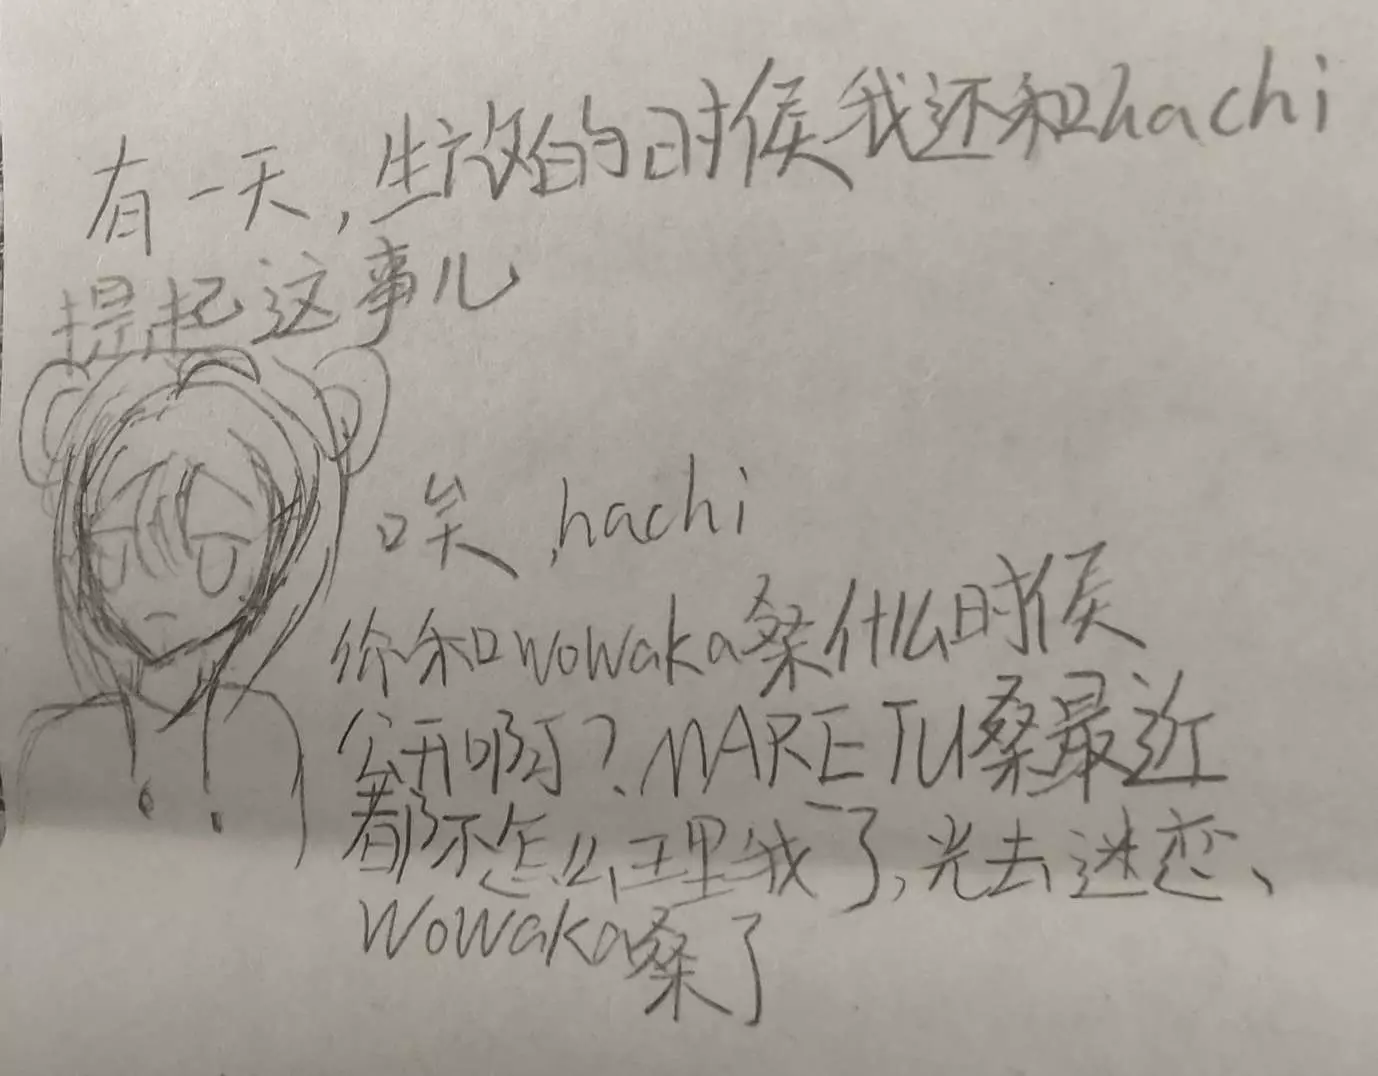 有一天,生放的时候我还和hachi
提起这事儿
唉,hachi
你和wowaka桑什么时候
公开啊?MARETU桑最近
都不怎么理我了,光去迷恋、
wowaka桑了